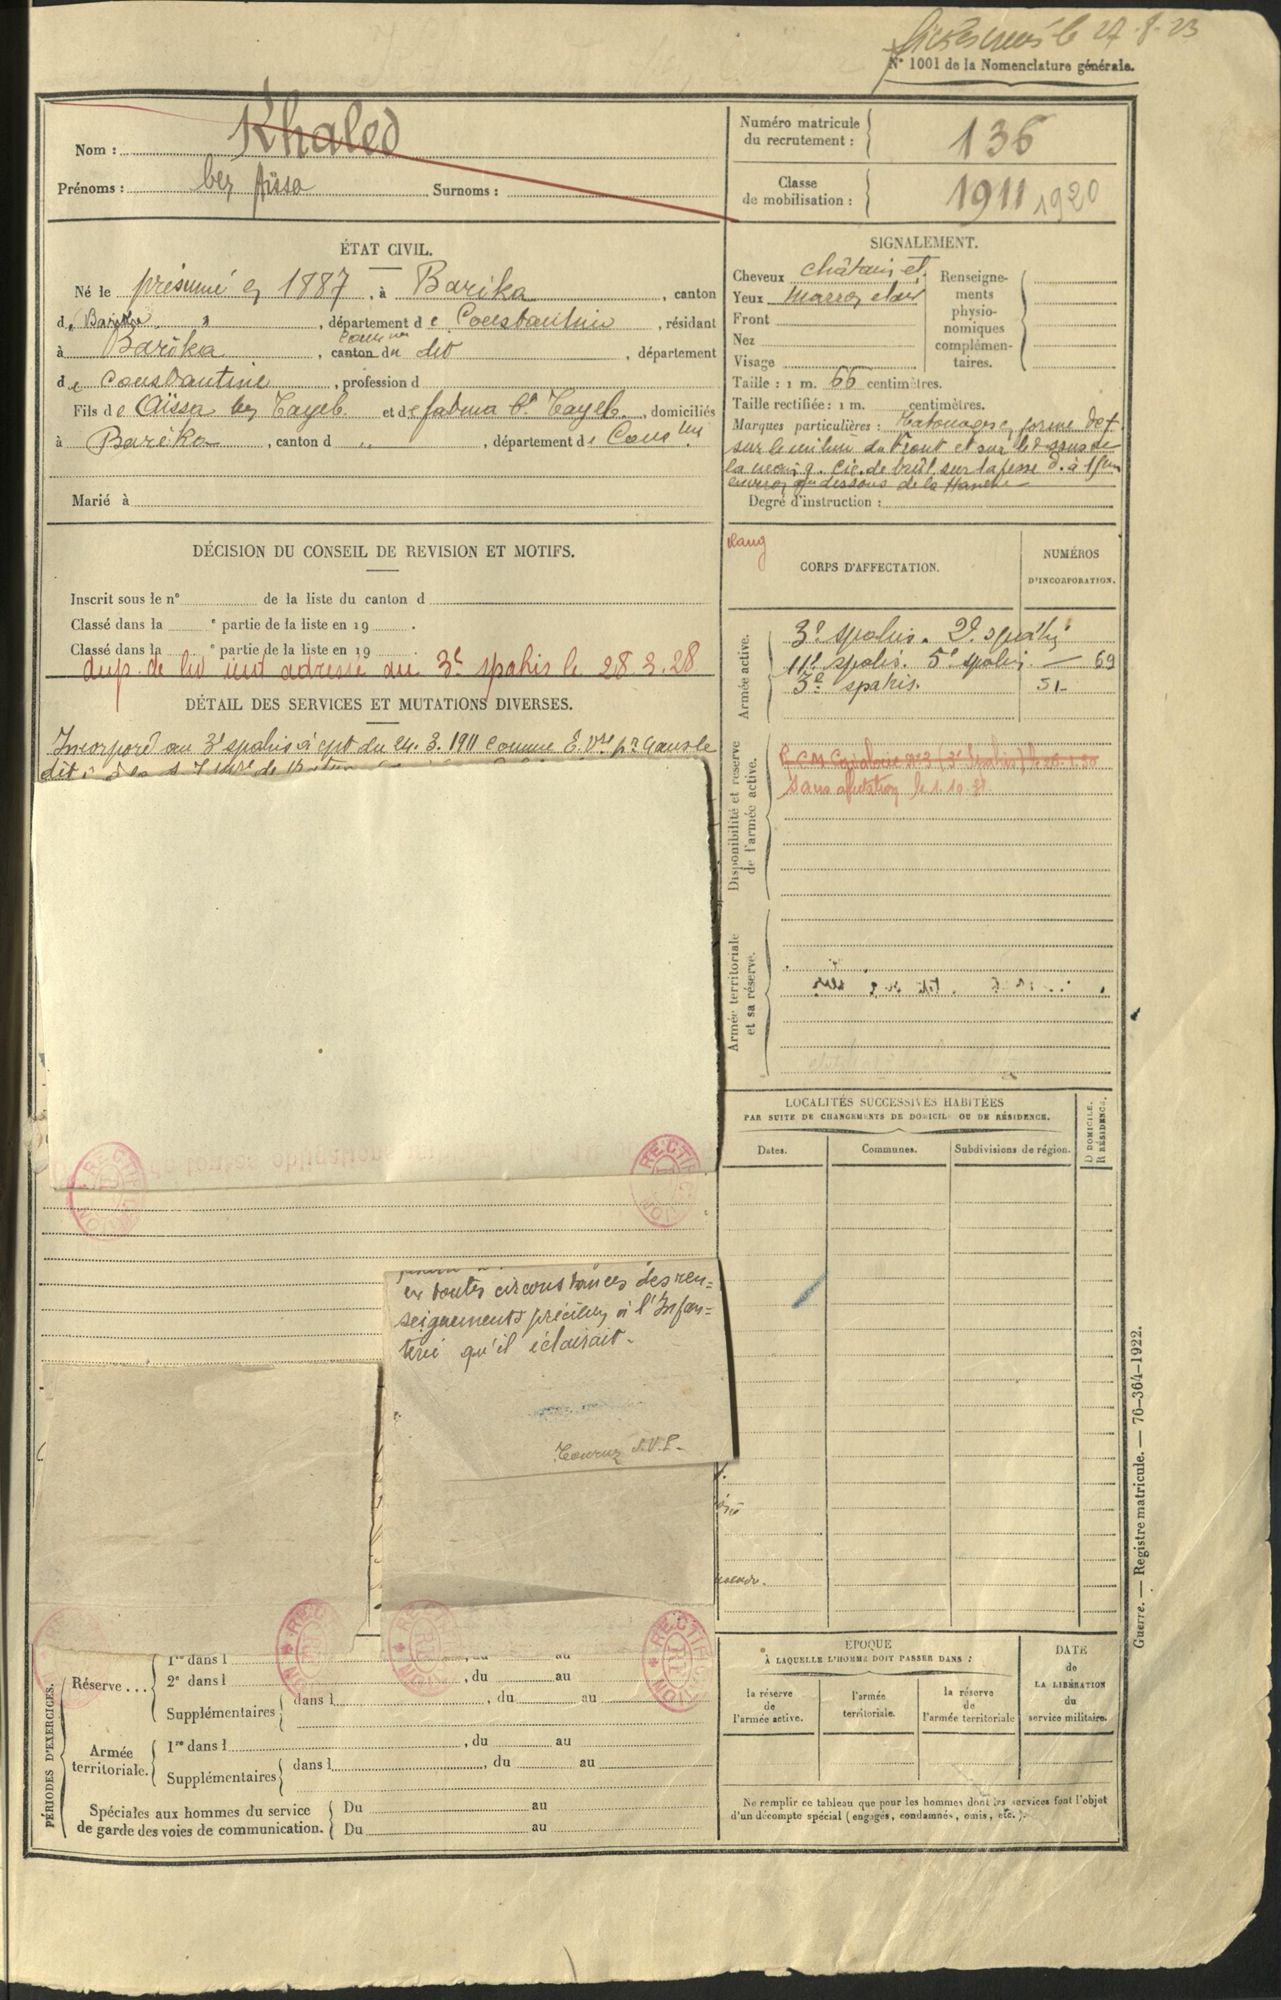 le 27-8-23
N° 1001 de la Nomenclature générale.
Nom : Khaled
Prénoms : ben Aïssa Surnoms :
Numéro matricule du recrutement : 136
Classe de mobilisation : 1911 1920
ÉTAT CIVIL.
Né le présumé en 1887, à Barika, canton
de Barika, département de Constantine, résidant
à Barika, canton du dit, département
de Constantine, profession d
Fils de Aïssa ben Tayeb et de fatma bt Tayeb, domiciliés
à Barika, canton d ", département de
Marié à
SIGNALEMENT.
Cheveux châtain
Yeux marron clair
Front
Nez
Visage
Renseigne-
ments
physio-
nomiques
complémen-
taires.
Taille : 1 m. 66 centimètres.
Taille rectifiée : 1 m. centimètres.
Marques particulières : Tatouages en forme de +
sur le milieu du Front et sur le dessous de
la main g. Cic. de brûl. sur la fesse d. à
environ au dessous de la Hanche
Degré d'instruction :
DÉCISION DU CONSEIL DE REVISION ET MOTIFS.
Inscrit sous le n° de la liste du canton d
Classé dans la e partie de la liste en 19 .
Classé dans la e partie de la liste en 19 .
dup. de liv ind adressé au 3e spahis le 28.3.28
DÉTAIL DES SERVICES ET MUTATIONS DIVERSES.
Incorporé au 3e spahis à cpt du 24.3.1911 comme E. Vre pr 4 ans le
dit
Rang
CORPS D'AFFECTATION.
NUMÉROS
D'INCORPORATION.
Armée active.
3e spahis. 2e spahis
11e spahis. 5e spahis — 69
3e spahis. 51
Disponibilité et réserve
de l'armée active.
Cavalerie n°3 (3e Spahis)
Sans affectation le 1.10.31
Armée territoriale
et sa réserve.
LOCALITÉS SUCCESSIVES HABITÉES
PAR SUITE DE CHANGEMENTS DE DOMICILE OU DE RÉSIDENCE.
Dates.
Communes.
Subdivisions de région.
D DOMICILE.
R RÉSIDENCE.
de toutes obligations
RECTIFICATION
RECTIFICATION
en toutes circonstances des ren-
seignements précieux à l'Infan-
terie qu'il éclairait.
RECTIFICATION
RECTIFICATION
RECTIFICATION
RECTIFICATION
PÉRIODES D'EXERCICES.
Réserve ...
1re dans l , du au
2e dans l , du au
Supplémentaires dans l , du au
Armée
territoriale.
1re dans l , du au
Supplémentaires dans l , du au
Spéciales aux hommes du service
de garde des voies de communication.
Du au
Du au
ÉPOQUE
À LAQUELLE L'HOMME DOIT PASSER DANS :
la réserve
de
l'armée active.
l'armée
territoriale.
la réserve
de
l'armée territoriale
DATE
de
LA LIBÉRATION
du
service militaire.
Ne remplir ce tableau que pour les hommes dont les services font l'objet
d'un décompte spécial (engagés, condamnés, omis, etc.).
Guerre. — Registre matricule. — 76-364-1922.